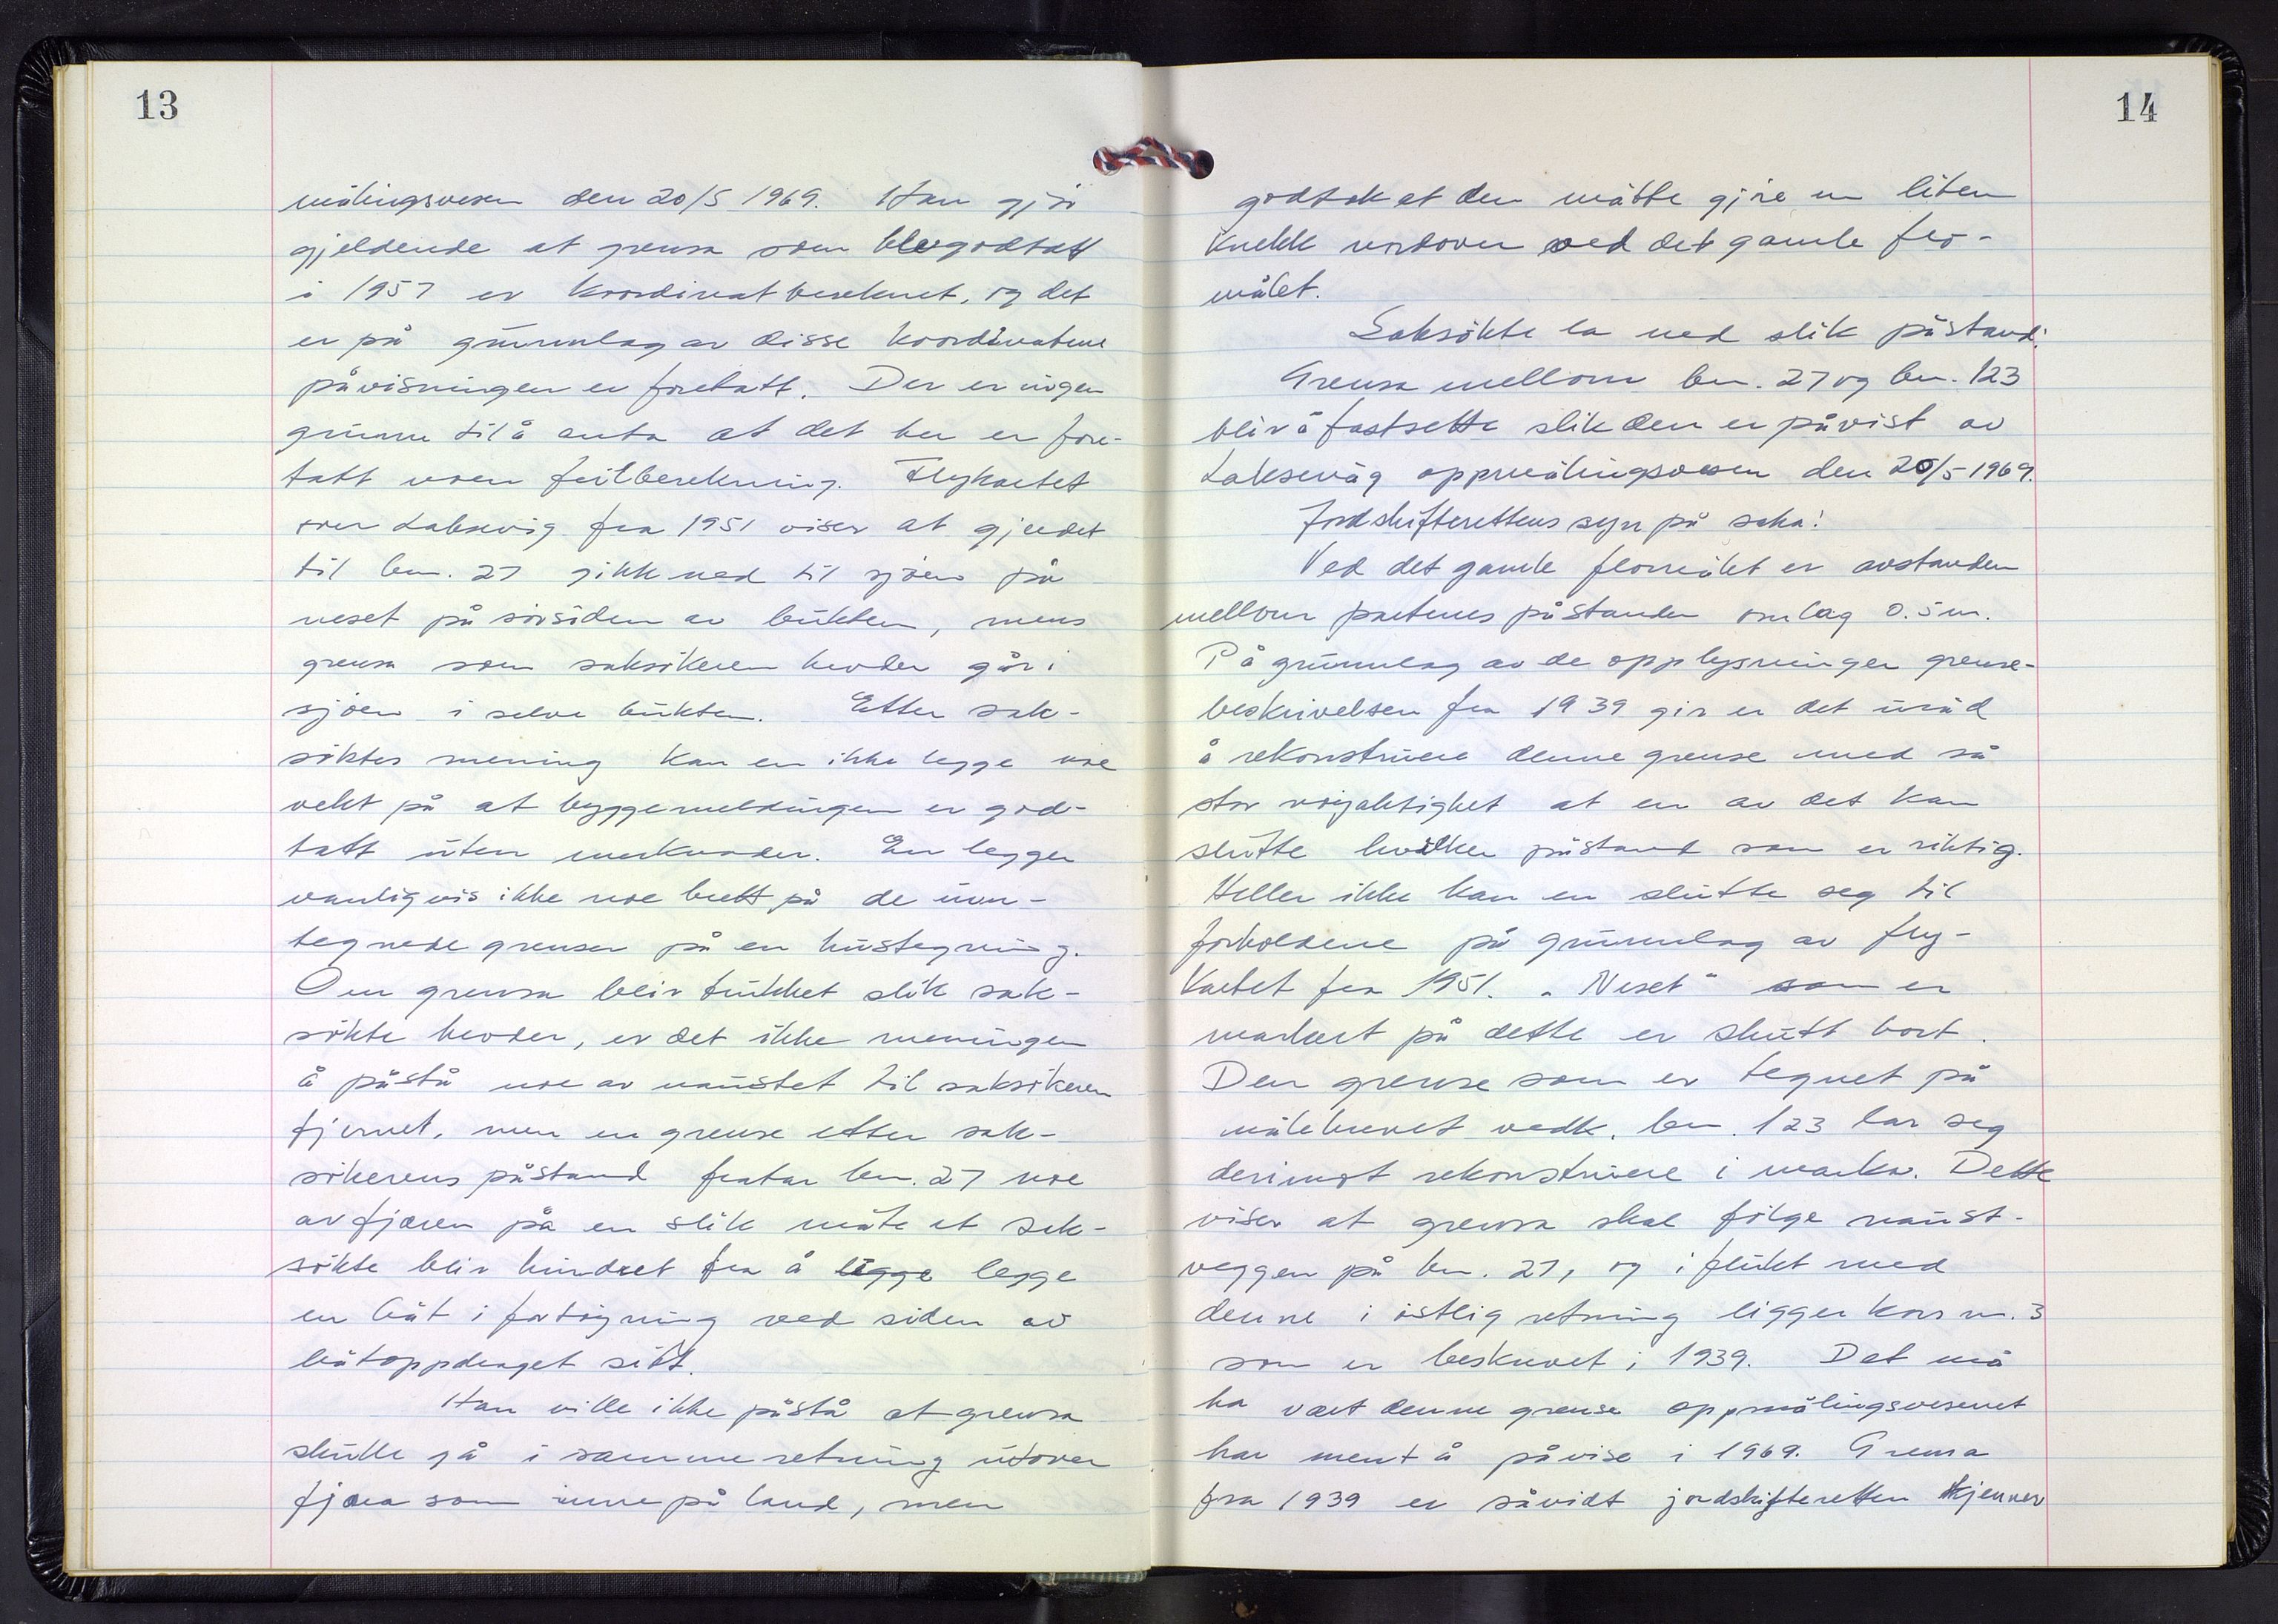 13
målingsvesen den 20/5 1969. Han gjör
gjeldende at grensa som ble godtatt
i 1957 er koordinatbereknet, og det
er på grunnlag av disse koordinatene
påvisningen er foretatt. Der er ingen
grunn til å anta at det her er fore-
tatt noen feilberekning. Flykartet
over Laksevåg fra 1951 viser at gjerdet
til bn. 27 gikk ned til sjöen på
neset på sörsiden av bukten, mens
grensa som saksökeren hevder går i
sjöen i selve bukten. Etter sak-
söktes mening kan en ikke legge noe
vekt på at byggemeldingen er god-
tatt uten merknader. En legger
vanligvis ikke noe brett på de inn-
tegnede grenser på en hustegning.
Om grensa blir trukket slik sak-
sökte hevder, er det ikke meningen
å påstå noe av naustet til saksökeren
fjernet, men en grense etter sak-
sökerens påstand fratar bn. 27 noe
av fjæren på en slik måte at sak-
sökte blir hindret fra å ligge legge
en båt i fortöyning ved siden av
båtoppdraget sitt.
Han ville ikke påstå at grensa
skulle gå i samme retning utover
fjæra som inne på land, men
14
godtok at den måtte gjöre en liten
knekk nordover ved det gamle flo-
målet.
Saksökte la ned slik påstand:
Grensa mellom bn. 27 og bn. 123
blir å fastsette slik den er påvist av
Laksevåg oppmålingsvesen den 20/5-1969.
Jordskifterettens syn på saka:
Ved det gamle flomålet er avstanden
mellom partenes påstander omlag 0.5 m.
På grunnlag av de opplysninger grense-
beskrivelsen fra 1939 gir er det uråd
å rekonstruere denne grense med så
stor nöyaktighet at en av det kan
slutte hvilken påstand som er riktig.
Heller ikke kan en slutte seg til
forholdene på grunnlag av fly-
kartet fra 1951. "Neset" som er
markert på dette er skutt bort.
Den grense som er tegnet på
målebrevet vedk. bn. 123 lar seg
derimot rekonstruere i marka. Dette
viser at grensa skal fölge naust-
veggen på bn. 27, og i flukt med
denne i östlig retning ligger kors nr. 3
som er beskrevet i 1939. Det må
ha vært denne grense oppmålingsvesenet
har ment å påvise i 1969. Grensa
fra 1939 er såvidt jordskifteretten kjenner